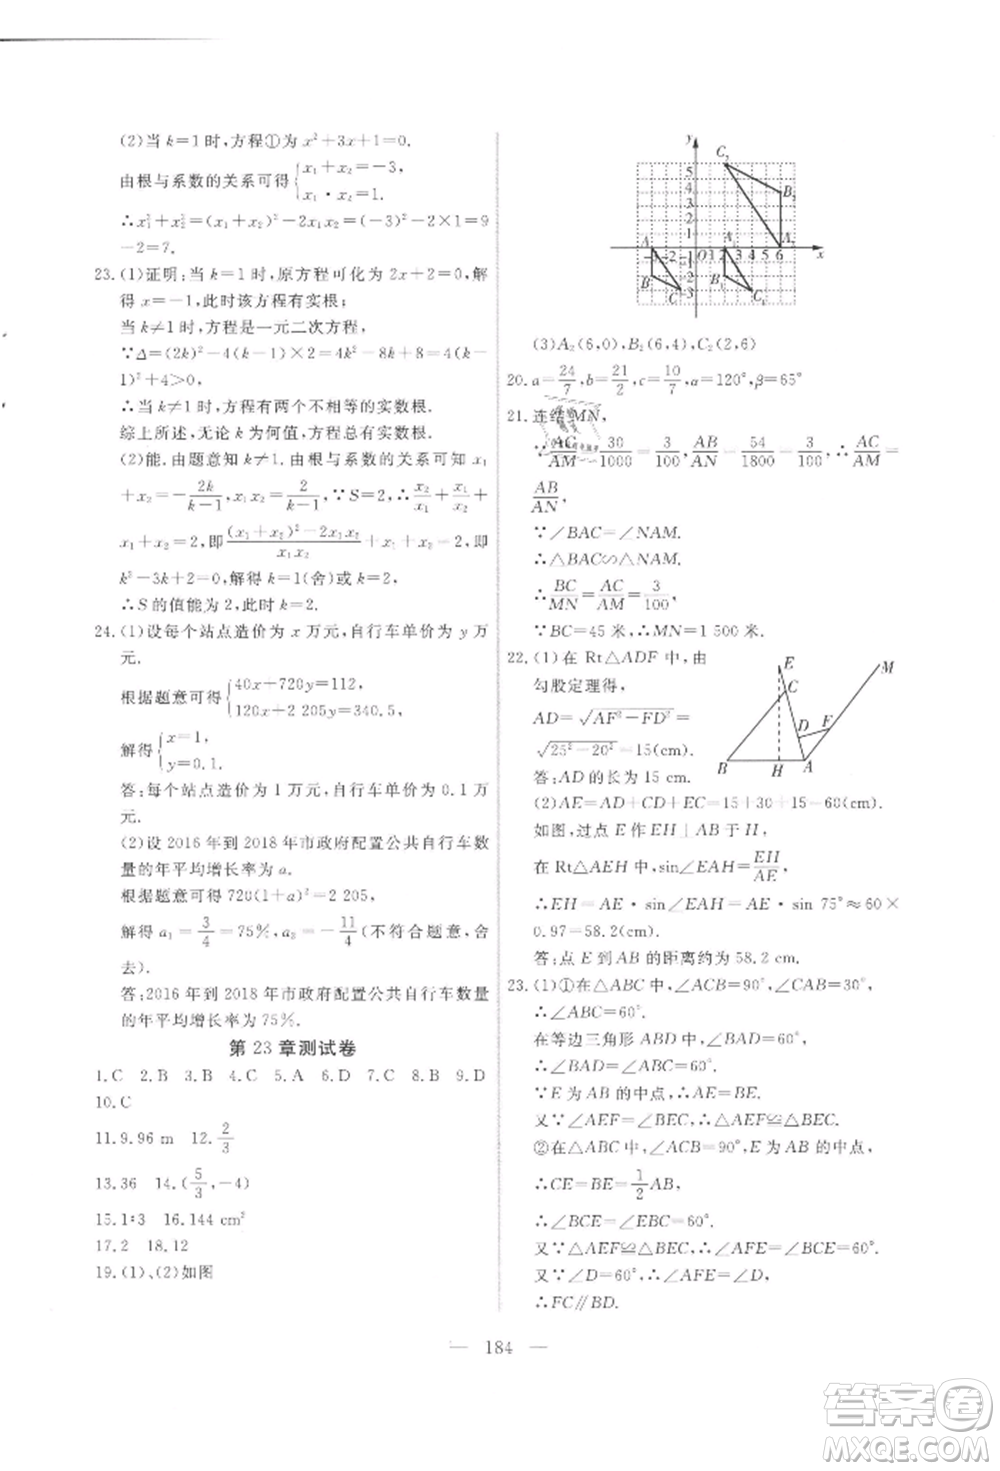 (2)当 k=1 时,方程①为 x²+3x+1=0.
由根与系数的关系可得{x₁+x₂=-3, x₁·x₂=1.
∴x₁²+x₂²=(x₁+x₂)²-2x₁x₂=(-3)²-2×1=9
-2=7.
23.(1)证明:当 k=1 时,原方程可化为 2x+2=0,解
得 x=-1,此时该方程有实根;
当 k≠1 时,方程是一元二次方程,
∵Δ=(2k)²-4(k-1)×2=4k²-8k+8=4(k-
1)²+4>0,
∴当 k≠1 时,方程有两个不相等的实数根.
综上所述,无论 k 为何值,方程总有实数根.
(2)能.由题意知 k≠1.由根与系数的关系可知 x₁
+x₂=-2k/(k-1),x₁x₂=2/(k-1),∵S=2,∴x₂/x₁+x₁/x₂+
x₁+x₂=2,即((x₁+x₂)²-2x₁x₂)/(x₁x₂)+x₁+x₂=2,即
k²-3k+2=0,解得 k=1(舍)或 k=2.
∴S的值能为 2,此时 k=2.
24.(1)设每个站点造价为 x 万元,自行车单价为 y 万
元.
根据题意可得{40x+720y=112, 120x+2 205y=340.5,
解得{x=1, y=0.1.
答:每个站点造价为 1 万元,自行车单价为 0.1 万
元.
(2)设 2016 年到 2018 年市政府配置公共自行车数
量的年平均增长率为 a.
根据题意可得 720(1+a)²=2 205,
解得 a₁=3/4=75%,a₂=-11/4(不符合题意,舍
去).
答:2016 年到 2018 年市政府配置公共自行车数量
的年平均增长率为 75%.
第 23 章测试卷
1.C 2.B 3.B 4.C 5.A 6.C 7.C 8.B 9.D
10.C
11.9.96 m 12.2/3
13.36 14.(5/3,-4)
15.1∶3 16.144 cm²
17.2 18.12
19.(1)、(2)如图
y C₂ 5 4 3 2 1 B₂ A A₁ A₂ O 1 2 3 4 5 6 x B C B₁ C₁
(3)A₂(6,0),B₂(6,4),C₂(2,6)
20.a=24/7,b=21/2,c=10/7,α=120°,β=65°
21.连结 MN,
∵AC/AM=30/1000=3/100,AB/AN=54/1800=3/100,∴AC/AM=
AB/AN,
∵∠BAC=∠NAM.
∴△BAC∽△NAM.
∴BC/MN=AC/AM=3/100,
∵BC=45 米,∴MN=1 500 米.
22.(1)在 Rt△ADF 中,由
勾股定理得,
AD=√(AF²-FD²)=
√(25²-20²)=15(cm).
答:AD 的长为 15 cm.
E M C D F B H A
(2)AE=AD+CD+EC=15+30+15=60(cm).
如图,过点 E 作 EH⊥AB 于 H,
在 Rt△AEH 中,sin∠EAH=EH/AE,
∴EH=AE·sin∠EAH=AE·sin 75°≈60×
0.97=58.2(cm).
答:点 E 到 AB 的距离约为 58.2 cm.
23.(1)①在△ABC 中,∠ACB=90°,∠CAB=30°,
∴∠ABC=60°.
在等边三角形 ABD 中,∠BAD=60°,
∴∠BAD=∠ABC=60°.
∵E 为 AB 的中点,∴AE=BE.
又∵∠AEF=∠BEC,∴△AEF≌△BEC.
②在△ABC 中,∠ACB=90°,E 为 AB 的中点,
∴CE=BE=1/2AB,
∴∠BCE=∠EBC=60°.
又∵△AEF≌△BEC,∴∠AFE=∠BCE=60°.
又∵∠D=60°,∴∠AFE=∠D=60°.
∴FC∥BD.
— 184 —
答案卷
MXQE.COM